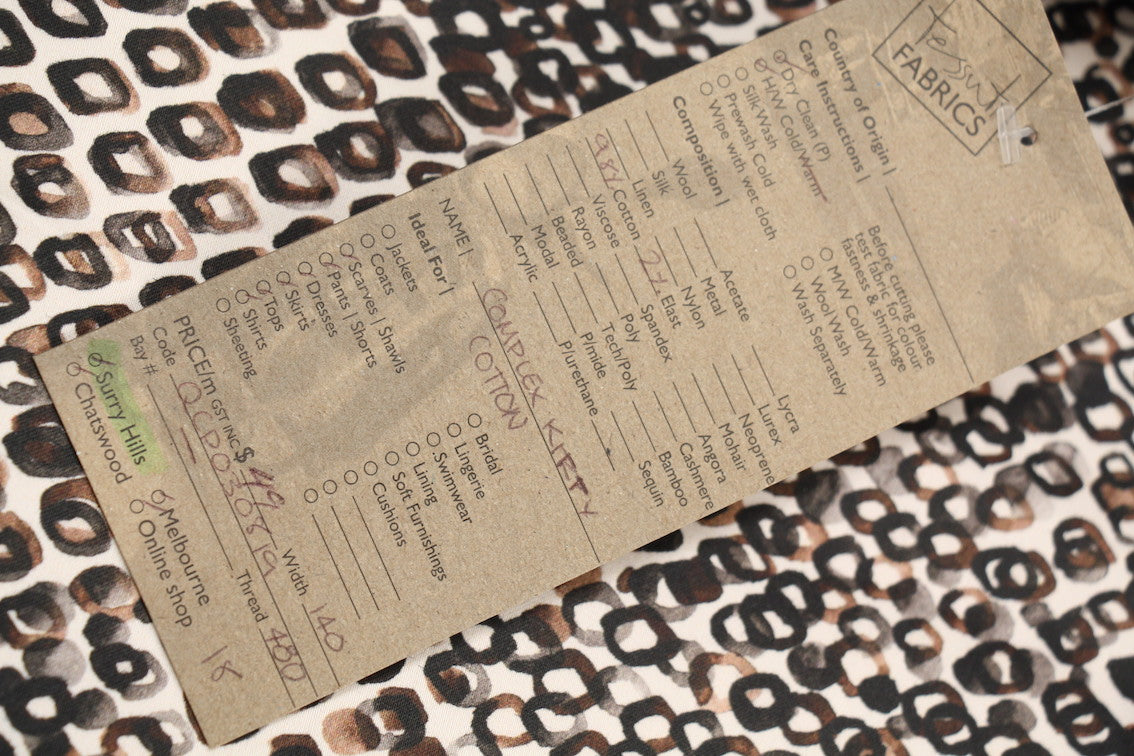 Tessuti
FABRICS
Country of Origin |
Care Instructions |
Dry Clean (P)
H/W Cold/Warm
Silk Wash
Prewash Cold
Wipe with wet cloth
Before cutting please
test fabric for colour
fastness & shrinkage
M/W Cold/Warm
Wool Wash
Wash Separately
Composition |
Wool
Silk
Linen
98% Cotton
Viscose
Rayon
Beaded
Modal
Acrylic
Acetate
Metal
Nylon
2% Elast
Spandex
Poly
Tech/Poly
P/mide
P/urethane
Lycra
Lurex
Neoprene
Mohair
Angora
Cashmere
Bamboo
Sequin
NAME |
COMPLEX KIRTY
COTTON
Ideal For |
Jackets
Coats
Scarves | Shawls
Pants | Shorts
Dresses
Skirts
Tops
Shirts
Sheeting
Bridal
Lingerie
Swimwear
Lining
Soft Furnishings
Cushions
PRICE/m GST INC $ 49
Width 140
Code QCP030819
Thread 480
Bay #
18
Surry Hills
Melbourne
Chatswood
Online shop